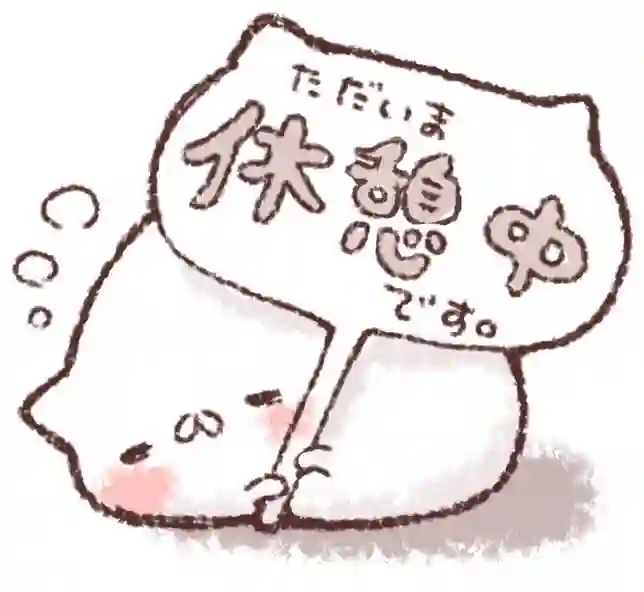 ただいま
休憩中
です。